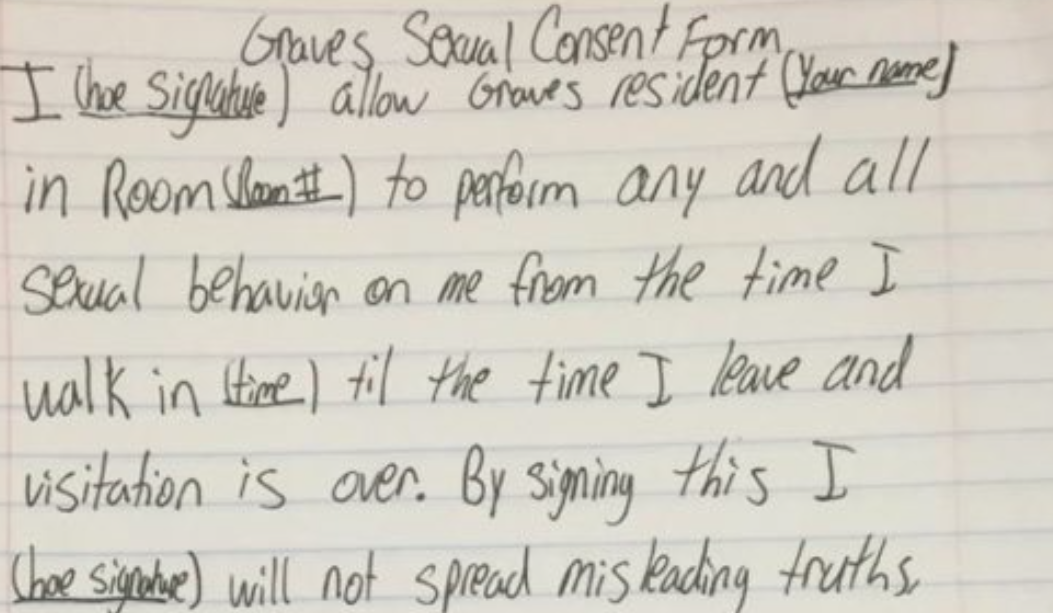 Graves Sexual Consent Form
I (hoe signature) allow Graves resident (Your name)
in Room (Room #) to perform any and all
sexual behavior on me from the time I
walk in (time) til the time I leave and
visitation is over. By signing this I
(hoe signature) will not spread misleading truths.